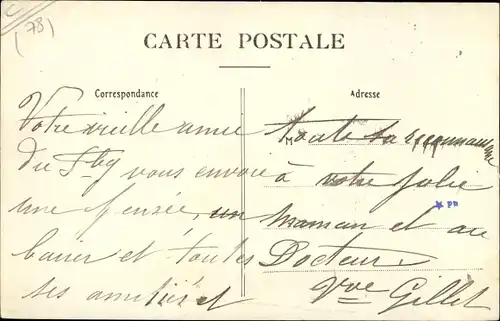 (78)
CARTE POSTALE
Correspondance
Adresse
Votre vieille amie
du vous envoie
une pensée, un
baiser et toutes
ses amitiés et
toute sa
M
à votre jolie
maman et au
Docteur.
Vve Gillet
* PH